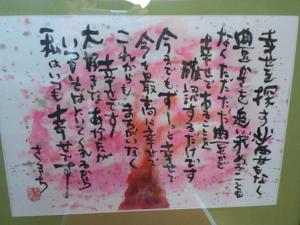 幸せを探す必要もなく
豊かさを追い求めることも
なくただただ豊かで
幸せであることを
確認するだけです
今までもずーっと幸せで
今も最高に幸せで
これからもまちがいなく
幸せです
大好きなあなたが
いつもそばにいてくれるから
私はいつも幸せです!